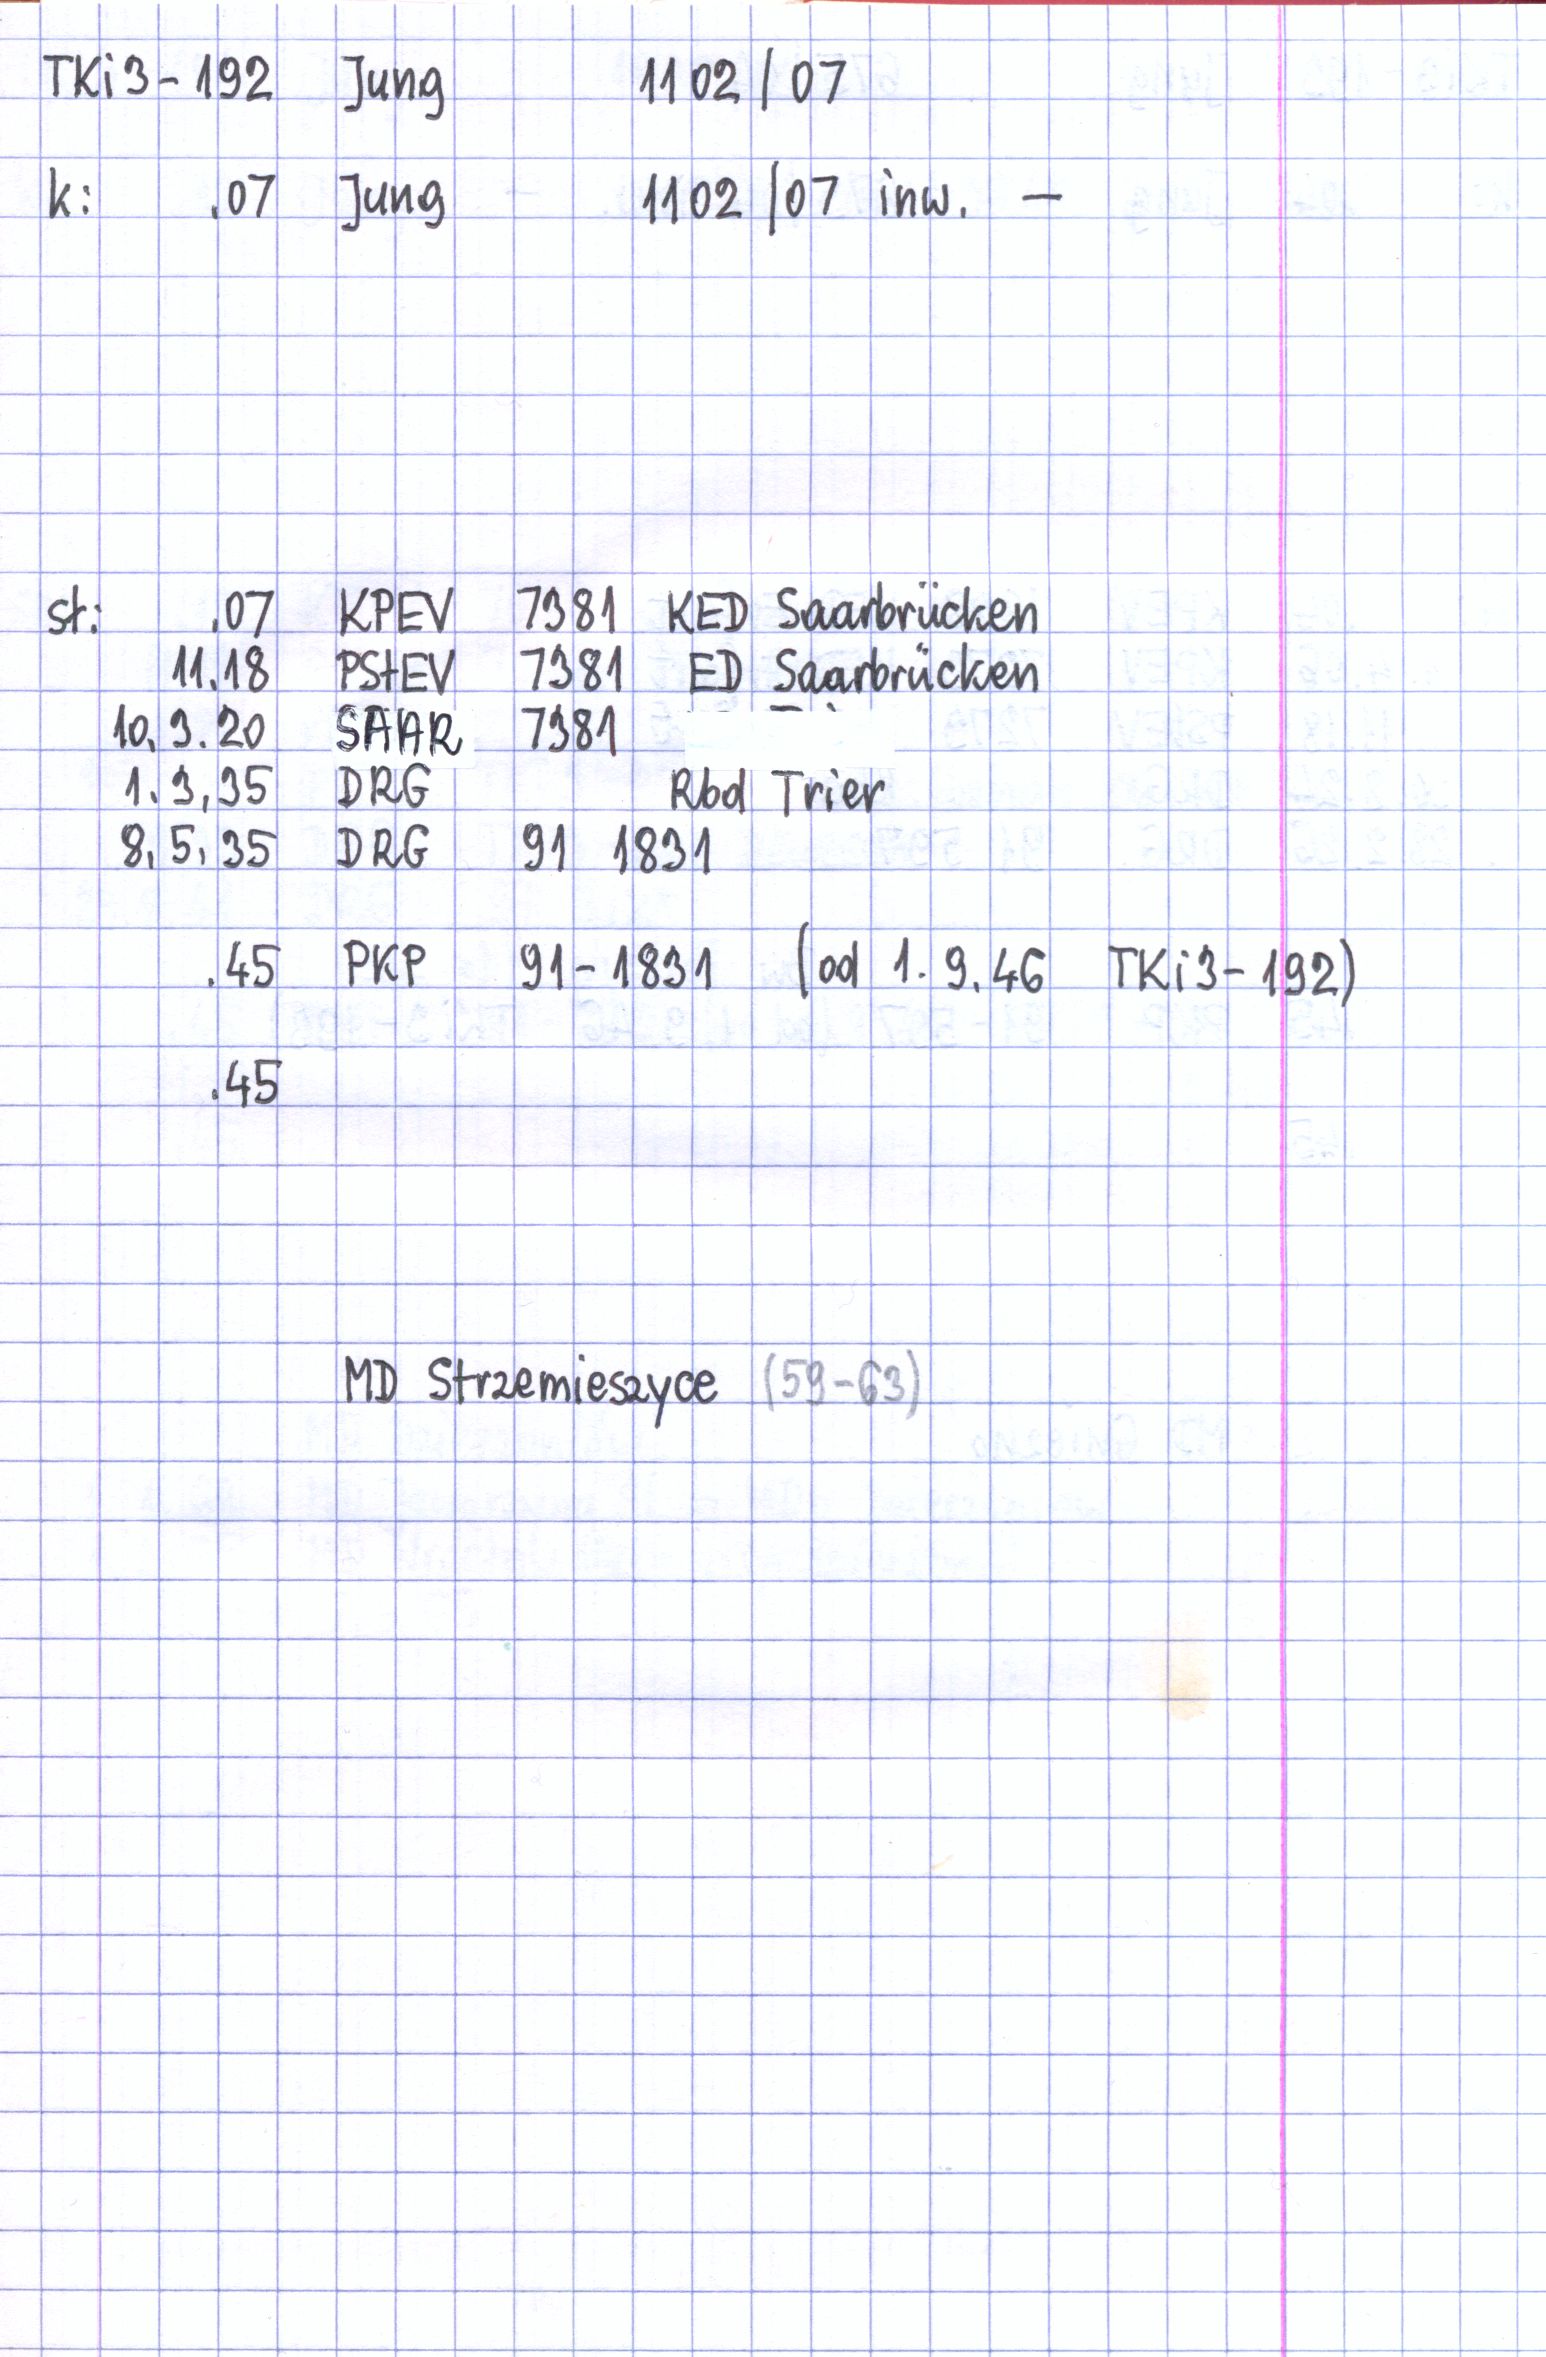 TKi3-192 Jung 1102/07
k: .07 Jung 1102/07 inw. —
st: .07 KPEV 7381 KED Saarbrücken
11.18 PStEV 7381 ED Saarbrücken
10.3.20 SAAR 7381
1.3.35 DRG Rbd Trier
8.5.35 DRG 91 1831
.45 PKP 91-1831 (od 1.9.46 TKi3-192)
.45
MD Strzemieszyce (59-63)